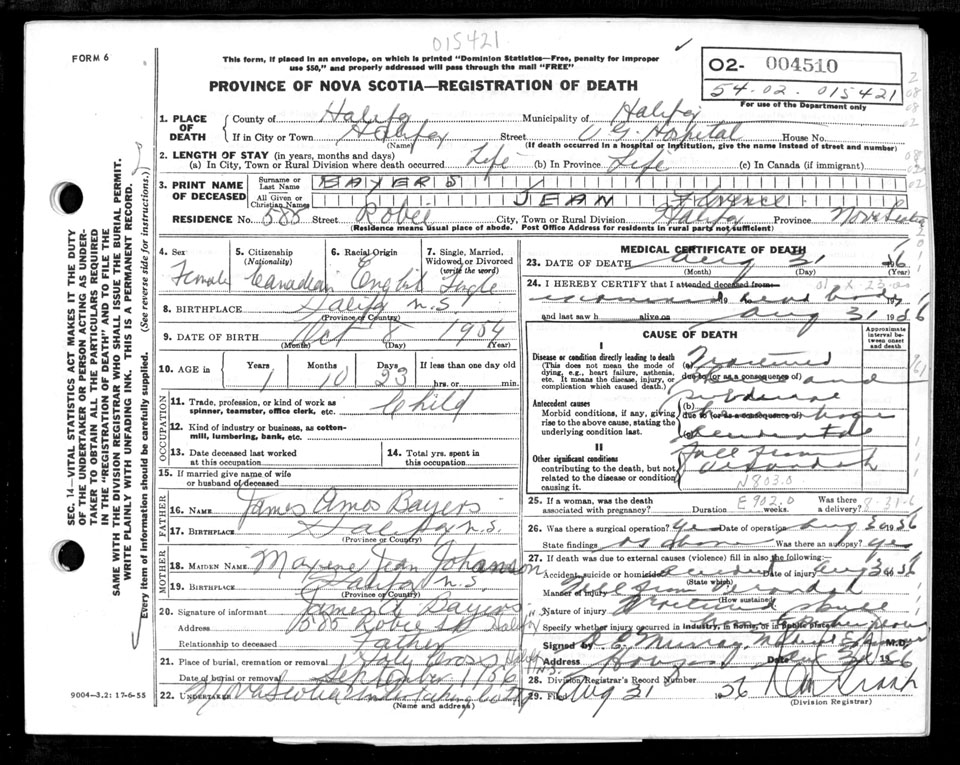 015421
FORM 6
This form, if placed in an envelope, on which is printed "Dominion Statistics—Free, penalty for improper
use $50," and properly addressed will pass through the mail "FREE"
PROVINCE OF NOVA SCOTIA—REGISTRATION OF DEATH
02- 004510
54-02. 015421
For use of the Department only
SEC. 14—VITAL STATISTICS ACT MAKES IT THE DUTY
OF THE UNDERTAKER OR PERSON ACTING AS UNDER-
TAKER TO OBTAIN ALL THE PARTICULARS REQUIRED
IN THE "REGISTRATION OF DEATH" AND TO FILE THE
SAME WITH THE DIVISION REGISTRAR WHO SHALL ISSUE THE BURIAL PERMIT.
WRITE PLAINLY WITH UNFADING INK. THIS IS A PERMANENT RECORD.
Every item of information should be carefully supplied. (See reverse side for instructions.)
1. PLACE OF DEATH
County of Halifax Municipality of Halifax
If in City or Town Halifax Street V.G. Hospital House No.
(Name) (If death occurred in a hospital or institution, give the name instead of street and number)
2. LENGTH OF STAY (in years, months and days)
(a) In City, Town or Rural Division where death occurred Life (b) In Province Life (c) In Canada (if immigrant)
3. PRINT NAME OF DECEASED
Surname or Last Name BAYERS
All Given or Christian Names JEAN Florence
RESIDENCE No. 585 Street Robie City, Town or Rural Division Halifax Province Nova Scotia
(Residence means usual place of abode. Post Office Address for residents in rural parts not sufficient)
4. Sex Female
5. Citizenship (Nationality) Canadian
6. Racial Origin English
7. Single, Married, Widowed or Divorced (write the word) Single
8. BIRTHPLACE Halifax N.S.
(Province or Country)
9. DATE OF BIRTH Oct 8 1954
(Month) (Day) (Year)
10. AGE in Years 1 Months 10 Days 23 If less than one day old
hrs. or min.
OCCUPATION
11. Trade, profession, or kind of work as
spinner, teamster, office clerk, etc. Child
12. Kind of industry or business, as cotton-
mill, lumbering, bank, etc.
13. Date deceased last worked
at this occupation
14. Total yrs. spent in
this occupation
15. If married give name of wife
or husband of deceased
FATHER
16. NAME James Amos Bayers
17. BIRTHPLACE Halifax N.S.
(Province or Country)
MOTHER
18. MAIDEN NAME Maxine Jean Johanson
19. BIRTHPLACE Halifax N.S.
(Province or Country)
20. Signature of informant James A Bayers
Address 585 Robie St Halifax
Relationship to deceased Father
21. Place of burial, cremation or removal Holy Cross Halifax
Date of burial or removal September 1 1956
22. UNDERTAKER Nova Scotia Undertaking Co Ltd
(Name and address)
9004—3.2: 17-6-55
MEDICAL CERTIFICATE OF DEATH
23. DATE OF DEATH Aug 31 1956
(Month) (Day) (Year)
24. I HEREBY CERTIFY that I attended deceased from
examined dead body
and last saw h alive on Aug 31 1956
CAUSE OF DEATH
Approximate interval between onset and death
I
Disease or condition directly leading to death
(This does not mean the mode of
dying, e.g., heart failure, asthenia,
etc. It means the disease, injury, or
complication which caused death.)
(a) Fractured
due to (or as a consequence of) and
Antecedent causes
Morbid conditions, if any, giving
rise to the above cause, stating the
underlying condition last.
(b) subdural
due to (or as a consequence of)
(c) accidental
II
Other significant conditions
contributing to the death, but not
related to the disease or condition
causing it.
fall from
verandah
N803.0
25. If a woman, was the death
associated with pregnancy? Duration weeks Was there
a delivery?
E902.0
26. Was there a surgical operation? Yes Date of operation Aug 30 1956
State findings as above Was there an autopsy? Yes
27. If death was due to external causes (violence) fill in also the following:—
Accident, suicide or homicide Accident Date of injury Aug 30 1956
(State which)
Manner of injury Fell from verandah
(How sustained)
Nature of injury Fractured skull
Specify whether injury occurred in industry, in home, or in public place
Signed by Murray Medical Examiner M.D.
Address Date Aug 31 1956
28. Division Registrar's Record Number
29. Filed Aug 31 1956
(Division Registrar)